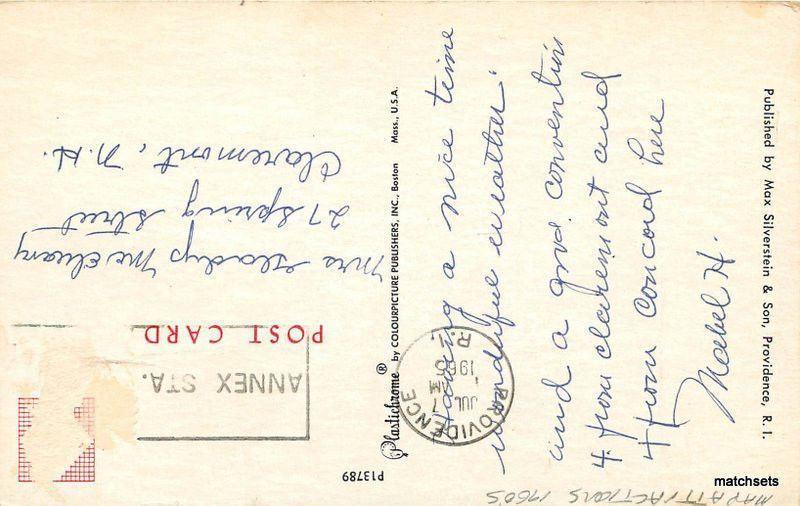 Having a nice time
wonderful weather.
and a good convention
4 from Claremont and
4 from Concord here
Mabel H.
POST CARD
Mrs Gladys
27 Spring
Street
Claremont, N.H.
PROVIDENCE
JUL 7
AM
1965
R.I.
ANNEX STA.
Plastichrome ® by COLOURPICTURE PUBLISHERS, INC., Boston Mass., U.S.A.
P13789
Published by Max Silverstein & Son, Providence, R. I.
MAP ATTRACTIONS 1960'S
matchsets